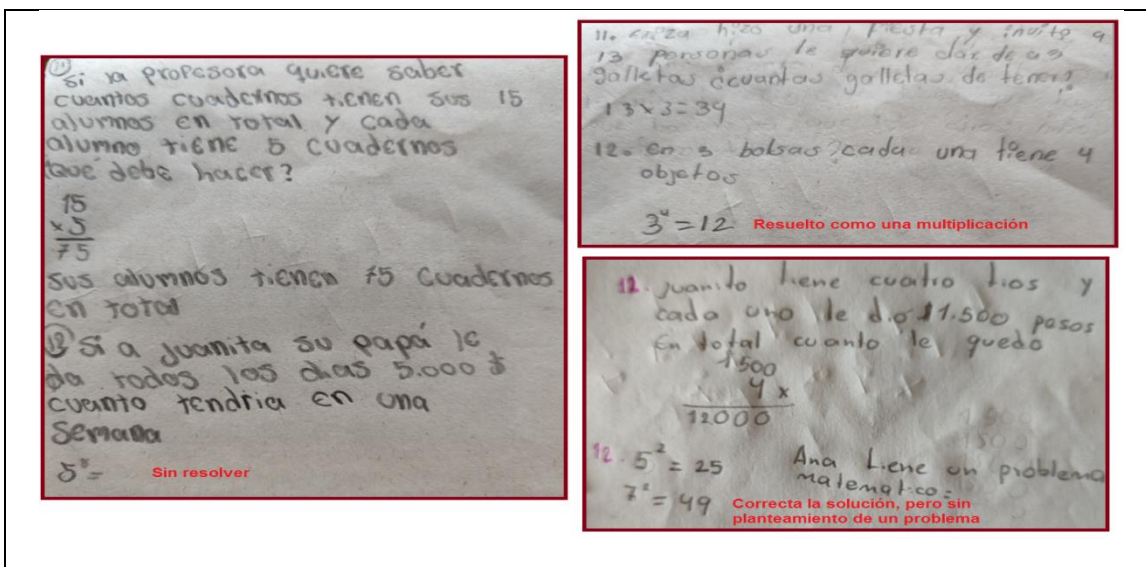 Si la profesora quiere saber
cuantos cuadernos tienen sus 15
alumnos en total y cada
alumno tiene 5 cuadernos
Que debe hacer?
15
×5
75
sus alumnos tienen 75 cuadernos
en total
12 Si a Juanita su papá le
da todos los dias 5.000 $
cuanto tendria en una
semana
Sin resolver
11. hizo una fiesta y invito a
13 personas le quiere dar de a 3
galletas cuantas galletas de tener?
13 x 3 = 39
12. en 3 bolsas? cada una tiene 4
objetos
3⁴ = 12 Resuelto como una multiplicación
12. Juanito tiene cuatro tios y
cada uno le dio $1.500 pesos
En total cuanto le quedo
1500
4 x
12000
12. 5² = 25 Ana tiene un problema
matematico:
7² = 49 Correcta la solución, pero sin
planteamiento de un problema